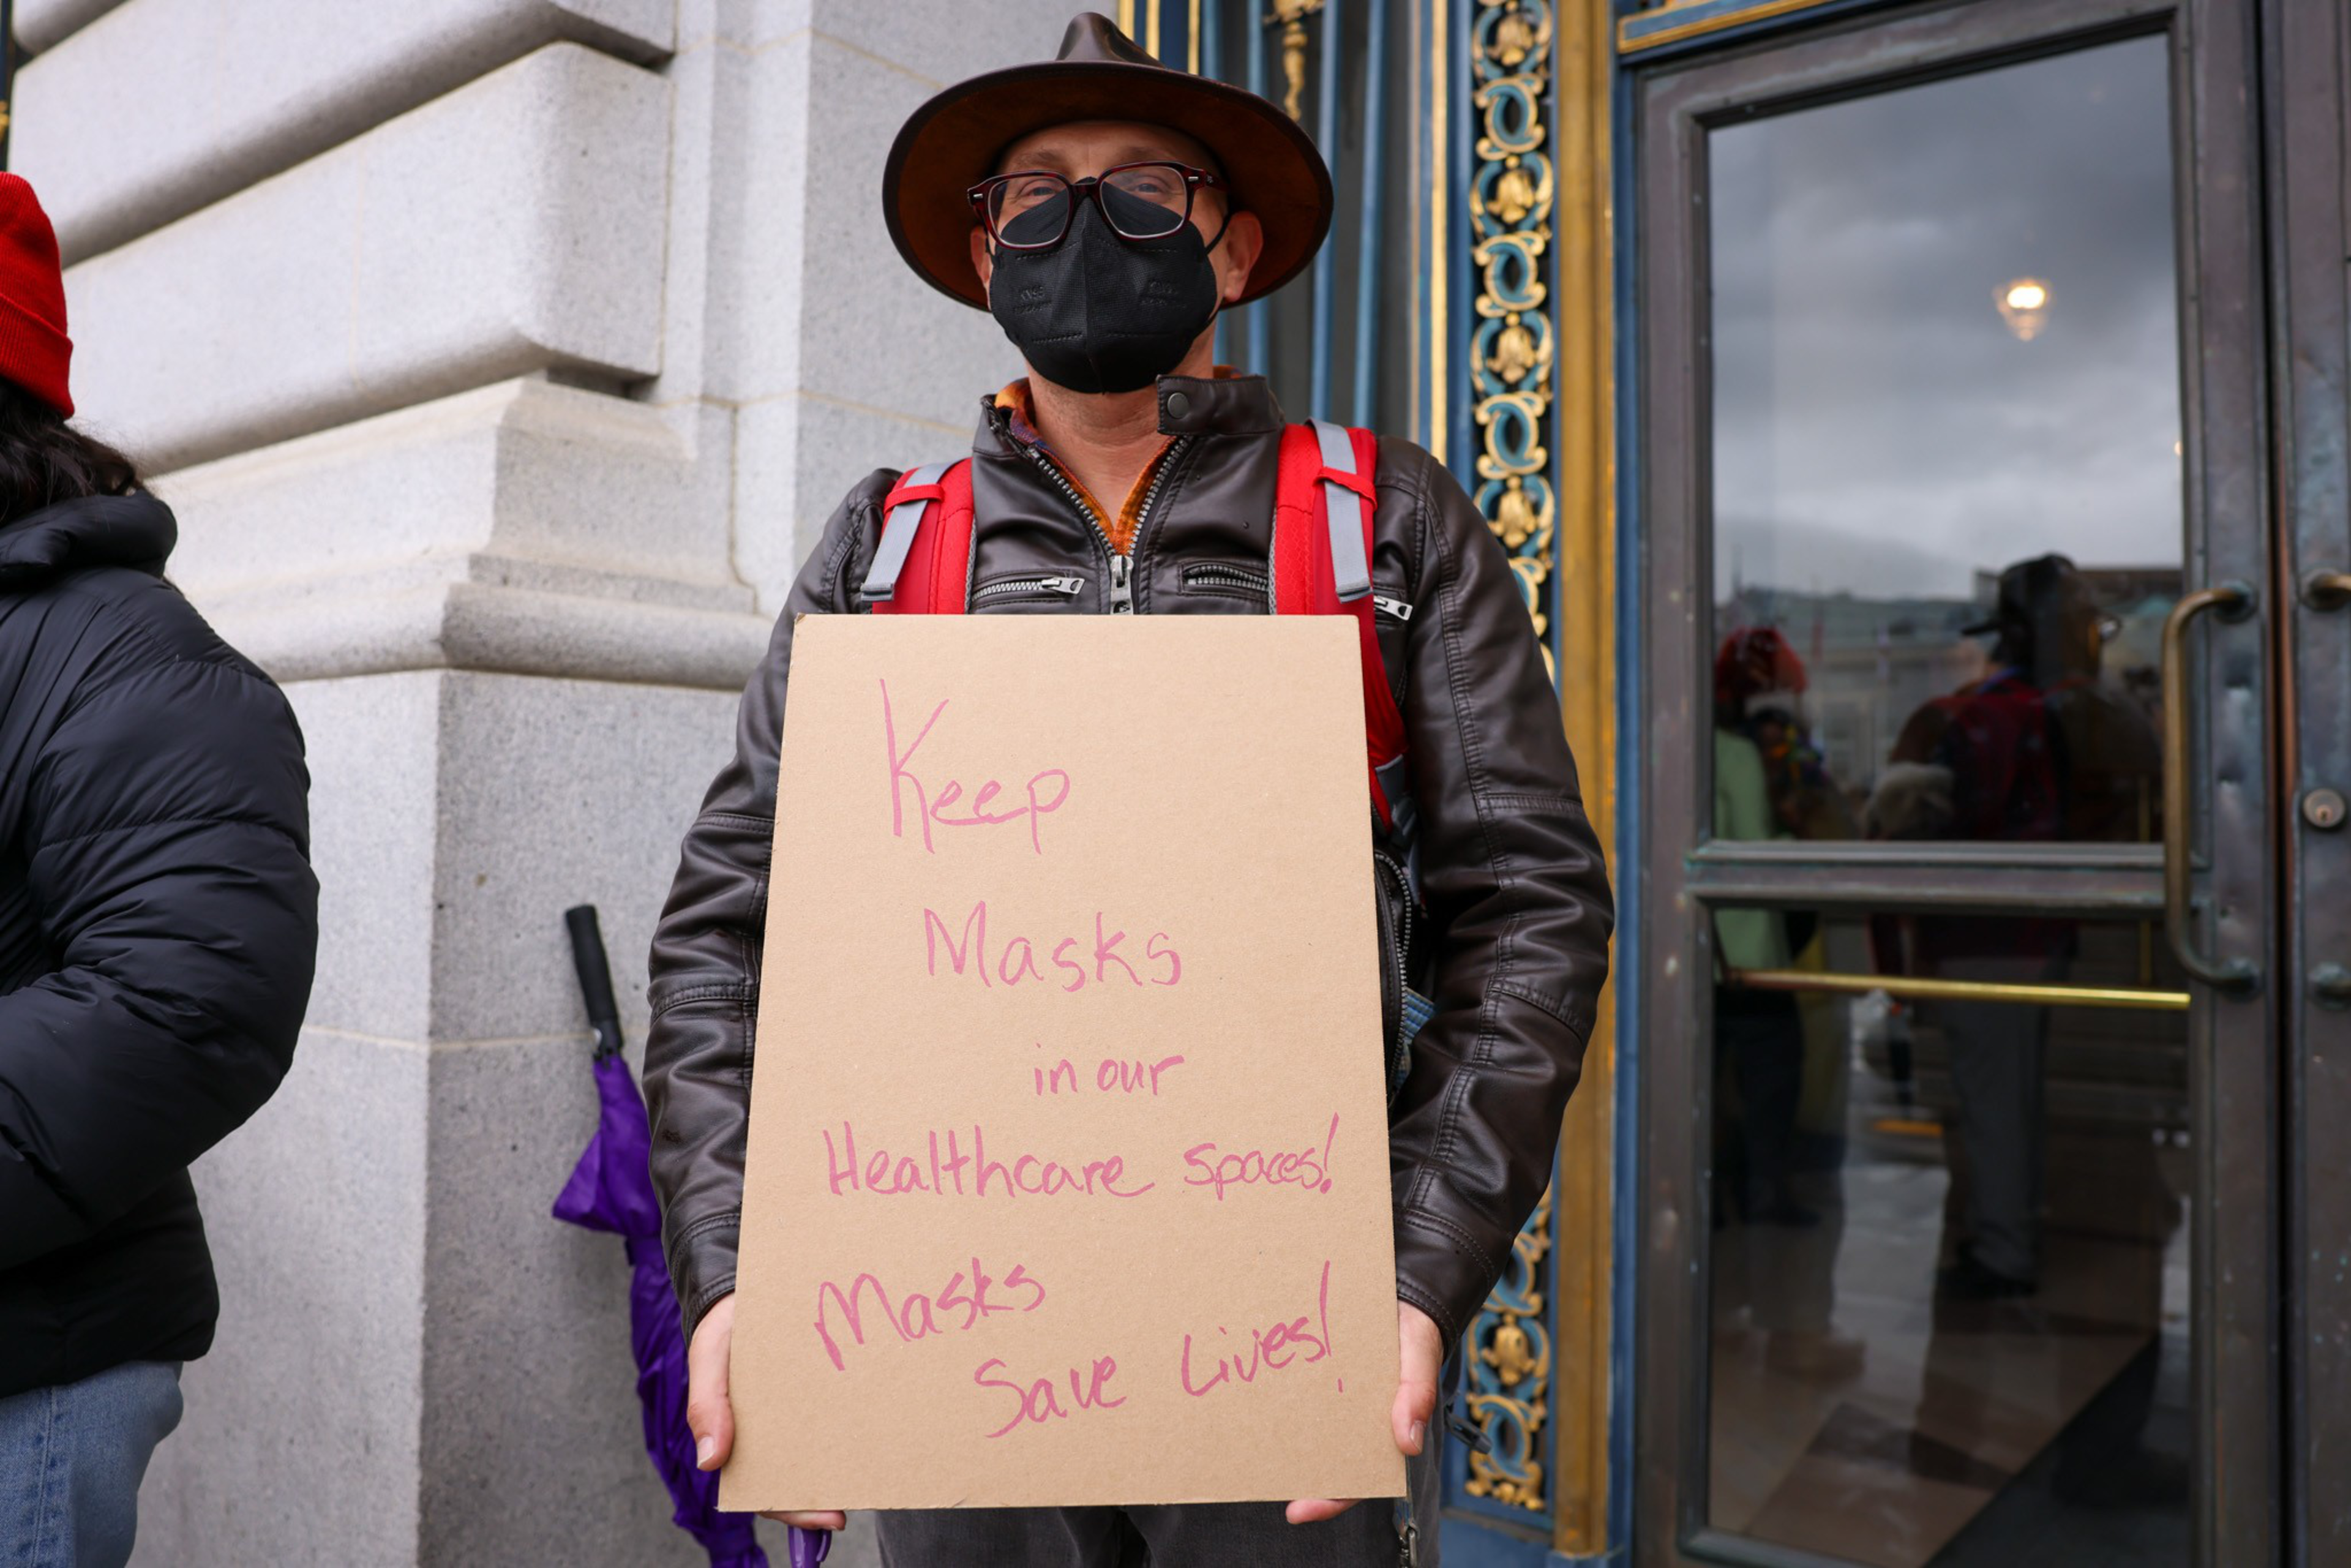 Keep
Masks
in our
Healthcare spaces!
Masks
Save Lives!
KN95